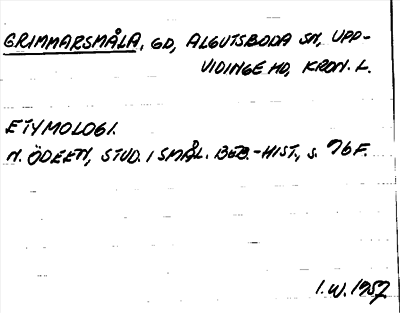 GRIMMARSMÅLA, GD, ALGUTSBODA SN, UPP-
VIDINGE HD, KRON. L.
ETYMOLOGI.
N. ÖDEEN, STUD. I SMÅL. BEB.-HIST., S. 76 F.
I.W. 1957